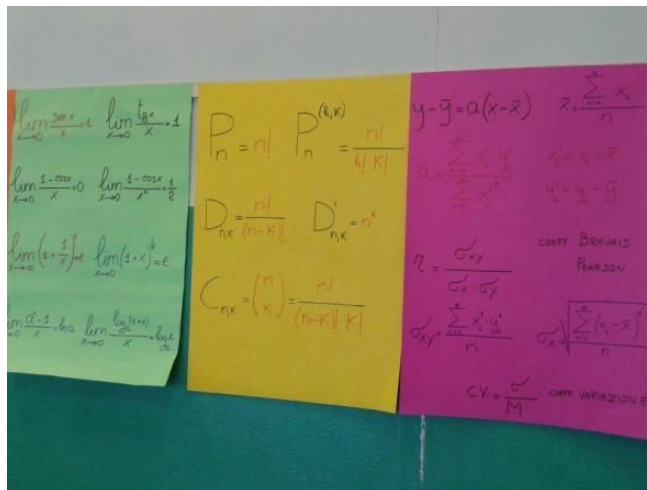 lim x→0 sen x / x = 1   lim x→0 tg x / x = 1
lim x→0 1-cos x / x = 0   lim x→0 1-cos x / x² = 1/2
lim x→∞ (1+1/x)^x = e   lim x→0 (1+x)^(1/x) = e
lim x→0 a^x-1 / x = ln a   lim x→0 log_a(1+x) / x = log_a e
P_n = n!   P_n^(h,k) = n! / h! K!
D_n,k = n! / (n-K)!   D'_n,k = n^k
C_n,k = (n K) = n! / (n-K)! K!
y-ȳ = a(x-x̄)   x̄ = Σ x_i / n
a = Σ x'_i y'_i / Σ x'_i²   x'_i = x_i - x̄
y'_i = y_i - ȳ
r = σ_xy / σ_x · σ_y   COEFF BRAVAIS
PEARSON
σ_xy = Σ x'_i · y'_i / n   σ_x = √ Σ (x_i - x̄)² / n
C.V. = σ / M   COEFF VARIAZIONE